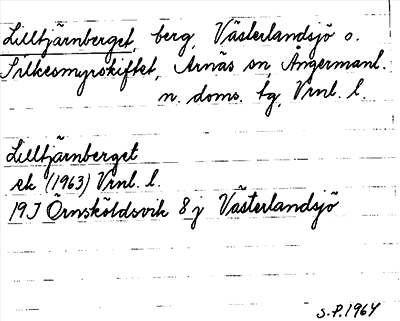 Lilltjärnberget, berg, Västerlandsjö o.
Silkesmyrskiftet, Arnäs sn Ångermanl.
n. doms. tg, Vrnl. l.
Lilltjärnberget
ek (1963) Vrnl. l.
19J Örnsköldsvik 8 j Västerlandsjö
S.P. 1964